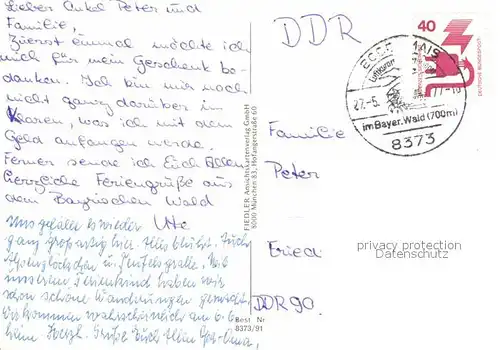 Lieber Onkel Peter und
Familie,
Zuerst einmal möchte ich
mich für mein Geschenk be-
danken. Ich bin mir noch
nicht ganz darüber im
Klaren, was ich mit dem
Geld anfangen werde.
Ferner sende ich Euch Allen
herzliche Feriengrüße aus
dem Bayrischen Wald
Ute
Uns gefällt es wieder
ganz großartig hier. Alles blüht. Auch
unserem Ferienkind haben wir
schon schöne Wanderungen gemacht.
Wir kommen wahrscheinlich am 6.6.
heim. Herzl. Grüße Euch Allen
FIEDLER, Ansichtskartenverlag GmbH
8000 München 83, Hofangerstraße 60
Best. Nr
8373/91
DDR
40
DEUTSCHE BUNDESPOST
Luftkurort
27.-5.
77-10
im Bayer. Wald (700m)
8373
Familie
Peter
Fried
DDR 90.
privacy protection
Datenschutz